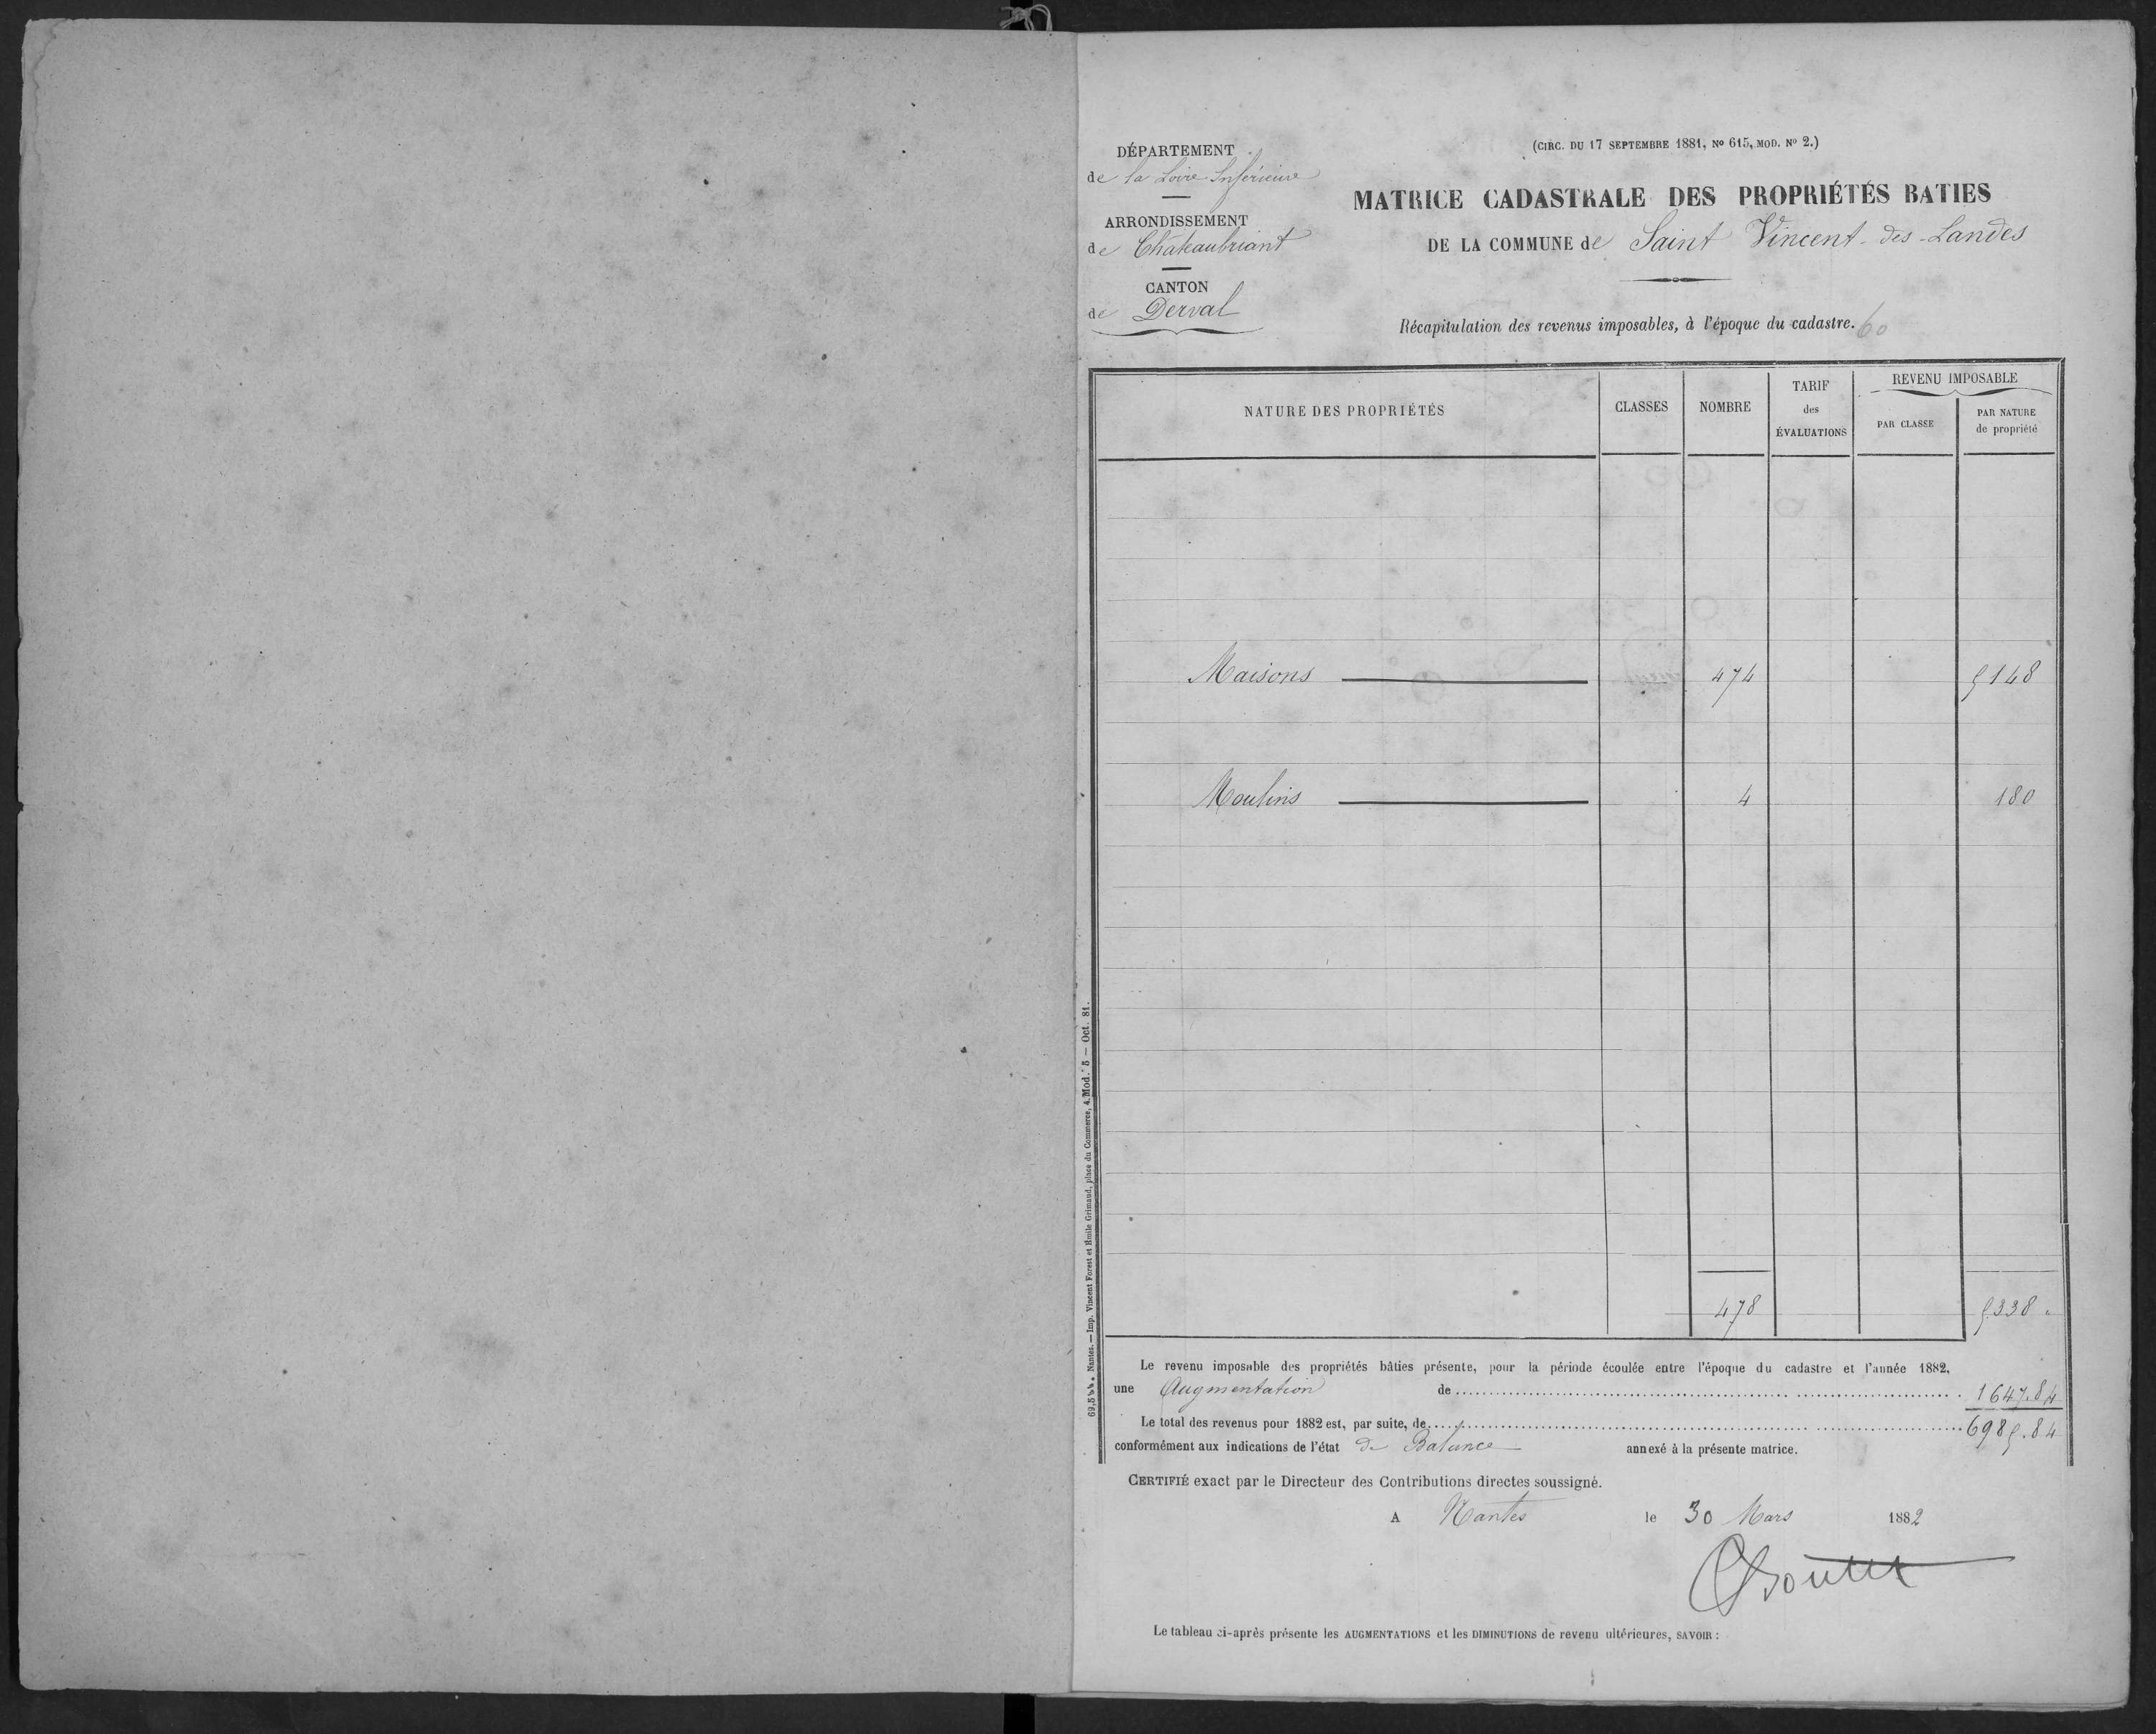 DÉPARTEMENT
de la Loire Inférieure
ARRONDISSEMENT
de Châteaubriant
CANTON
de Derval
(CIRC. DU 17 SEPTEMBRE 1881, No 615, MOD. No 2.)
MATRICE CADASTRALE DES PROPRIÉTÉS BATIES
DE LA COMMUNE de Saint Vincent-des-Landes
Récapitulation des revenus imposables, à l'époque du cadastre. 60
NATURE DES PROPRIÉTÉS CLASSES NOMBRE TARIF des ÉVALUATIONS REVENU IMPOSABLE PAR CLASSE PAR NATURE de propriété
Maisons 474 5148
Moulins 4 180
478 5338 "
Le revenu imposable des propriétés bâties présente, pour la période écoulée entre l'époque du cadastre et l'année 1882,
une Augmentation de 1647.84
Le total des revenus pour 1882 est, par suite, de 6985.84
conformément aux indications de l'état de Balance annexé à la présente matrice.
CERTIFIÉ exact par le Directeur des Contributions directes soussigné.
A Nantes le 30 Mars 1882
Le tableau ci-après présente les AUGMENTATIONS et les DIMINUTIONS de revenu ultérieures, SAVOIR :
Nantes. — Imp. Vincent Forest et Emile Grimaud, place du Commerce, 4. Mod. 5 — Oct. 81.